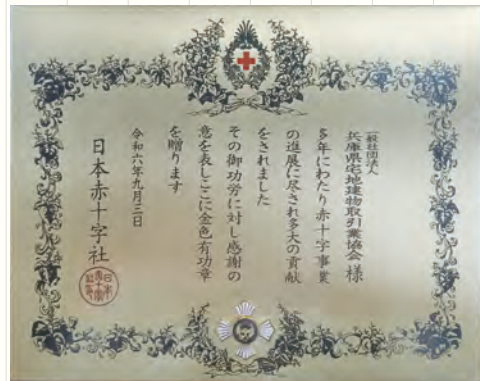 一般社団法人
兵庫県宅地建物取引業協会 様
多年にわたり赤十字事業
の進展に尽され多大の貢献
をされました
その御功労に対し感謝の
意を表しここに金色有功章
を贈ります
令和六年九月三日
日本赤十字社